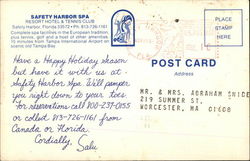 SAFETY HARBOR SPA
RESORT HOTEL & TENNIS CLUB
Safety Harbor, Florida 33572 • Ph. 813-726-1161
Complete spa facilities in the European tradition,
plus tennis, golf and a host of other amenities.
15 minutes from Tampa International Airport on
scenic old Tampa Bay
PLACE
STAMP
HERE
POST CARD
Address
Have a Happy Holiday season
but have it with us at
Safety Harbor Spa. Will pamper
you right down to your toes.
For reservations call 800-237-0155
or collect 813-726-1161 from
Canada or Florida.
Cordially,
Salu
MR. & MRS. ABRAHAM SNIDE
219 SUMMER ST.
WORCESTER, MA 01608